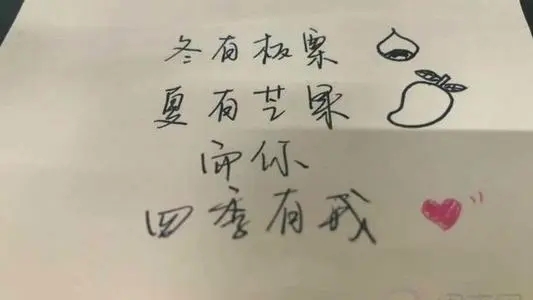 冬有板栗
夏有芒果
而你
四季有我